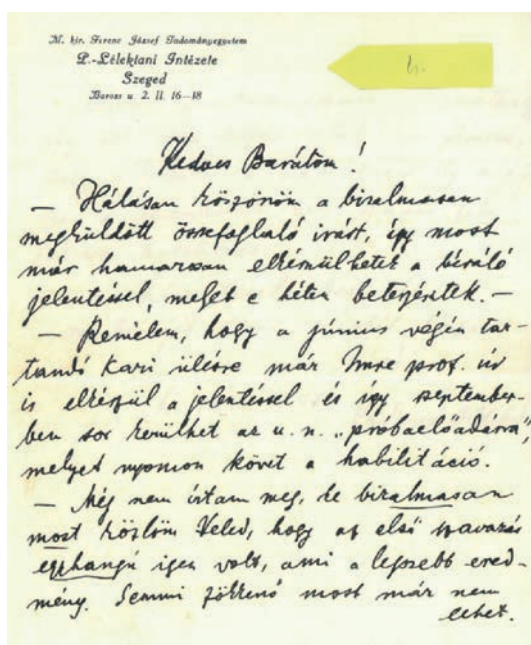 M. kir. Ferenc József Tudományegyetem
P.-Lélektani Intézete
Szeged
Baross u. 2. II. 16—18
Kedves Barátom!
— Hálásan köszönöm a bizalmasan
megküldött összefoglaló írást, így most
már hamarosan elkészülhetek a bíráló
jelentéssel, melyet e héten beterjesztek. —
— Remélem, hogy a június végén tar-
tandó kari ülésre már Imre prof. úr
is elkészül a jelentéssel és így szeptember-
ben sor kerülhet az u. n. „próbaelőadásra”,
melyet nyomon követ a habilitáció.
— Még nem írtam meg, de bizalmasan
most közlöm Veled, hogy az első szavazás
egyhangú igen volt, ami a legszebb ered-
mény. Semmi zökkenő most már nem
lehet.